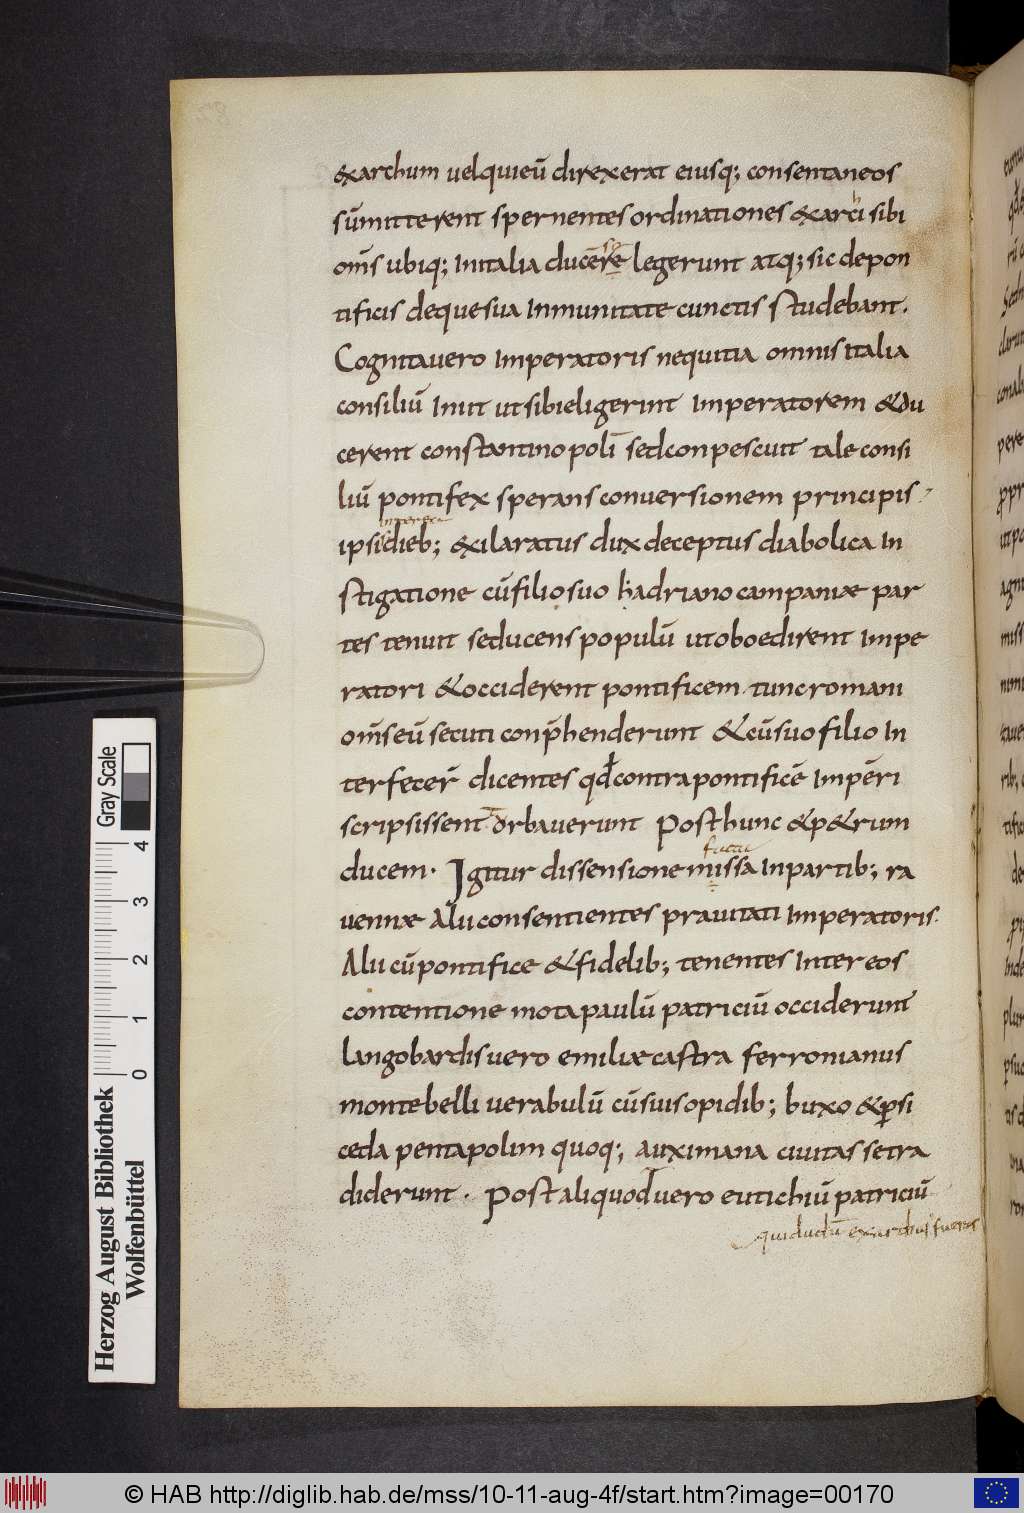 &archum uelquieū direxerat eiusq; consentaneos
sūmitterent spernentes ordinationes &archi sibi
om̄s ubiq; Initalia ducē sore legerunt atq; sic depon
tificis dequesua Inmunitate cunctis studebant.
Cognitauero Imperatoris nequitia omnis Italia
consiliū Iniit utsibieligerint Imperatorem &du
cerent constantinopoli sedconpescuit tale consi
liū pontifex sperans conuersionem principis
interea
ipsi dieb; exilaratus dux deceptus diabolica In
stigatione cūfilio suo hadriano campaniae par
tes tenuit seducens populū utoboedirent Impe
ratori &occiderent pontificem. tuncromani
om̄seū secuti conp̄henderunt &cūsuo filio In
terfecer̄ dicentes qđcontrapontificē Impēri
scripsissent orbauerunt Posthunc &p&rum
facta
ducem. Igitur dissensione missa Inpartib; ra
uennae Alii consentientes prauitati Imperatoris.
Alii cūpontifice &fidelib; tenentes Inter eos
contentione mota paulū patriciū occiderunt
langobardis uero emiliae castra ferronianus
montebelli uerabulū cūsuis opidib; buxo &psi
ceda pentapolim quoq; auximana ciuitas setra
diderunt. Post aliquod uero eutichiū patriciū
quidudū exarchus fueras
Gray Scale
4
3
2
1
0
Herzog August Bibliothek
Wolfenbüttel
© HAB http://diglib.hab.de/mss/10-11-aug-4f/start.htm?image=00170